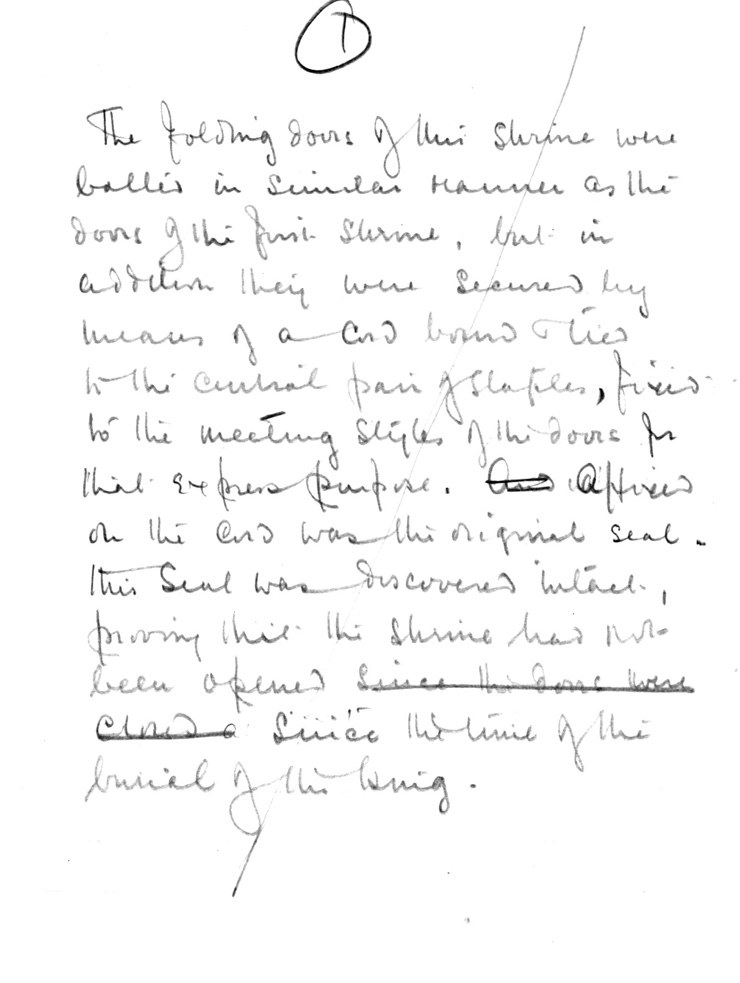 1
The folding doors of this Shrine were
bolted in similar manner as the
doors of the first Shrine, but in
addition they were secured by
means of a cord bound & tied
to the central pair of staples, fixed
to the meeting styles of the doors for
that express purpose. And Affixed
on the cord was the original seal.
This Seal was discovered intact,
proving that the Shrine had not
been opened since the doors were
closed a Since the time of the
burial of the King.